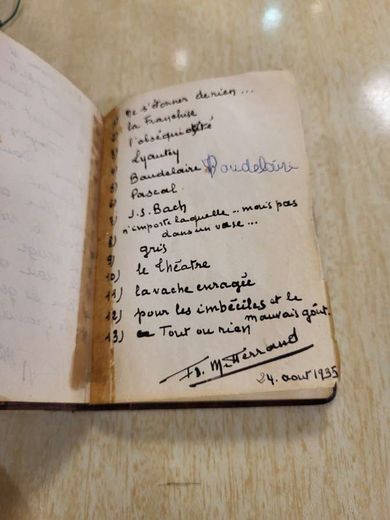 1) Ne s'étonner de rien ...
2) la Franchise
3) l'obséquiosité
4) Lyautey
5) Baudelaire Baudelaire
6) Pascal
7) J.S. Bach
8) n'importe laquelle ... mais pas
dans un vase ...
9) gris
10) le théâtre
11) la vache enragée
12) pour les imbéciles et le
mauvais goût.
13) Tout ou rien
Fs. Mitterrand
24. août 1935